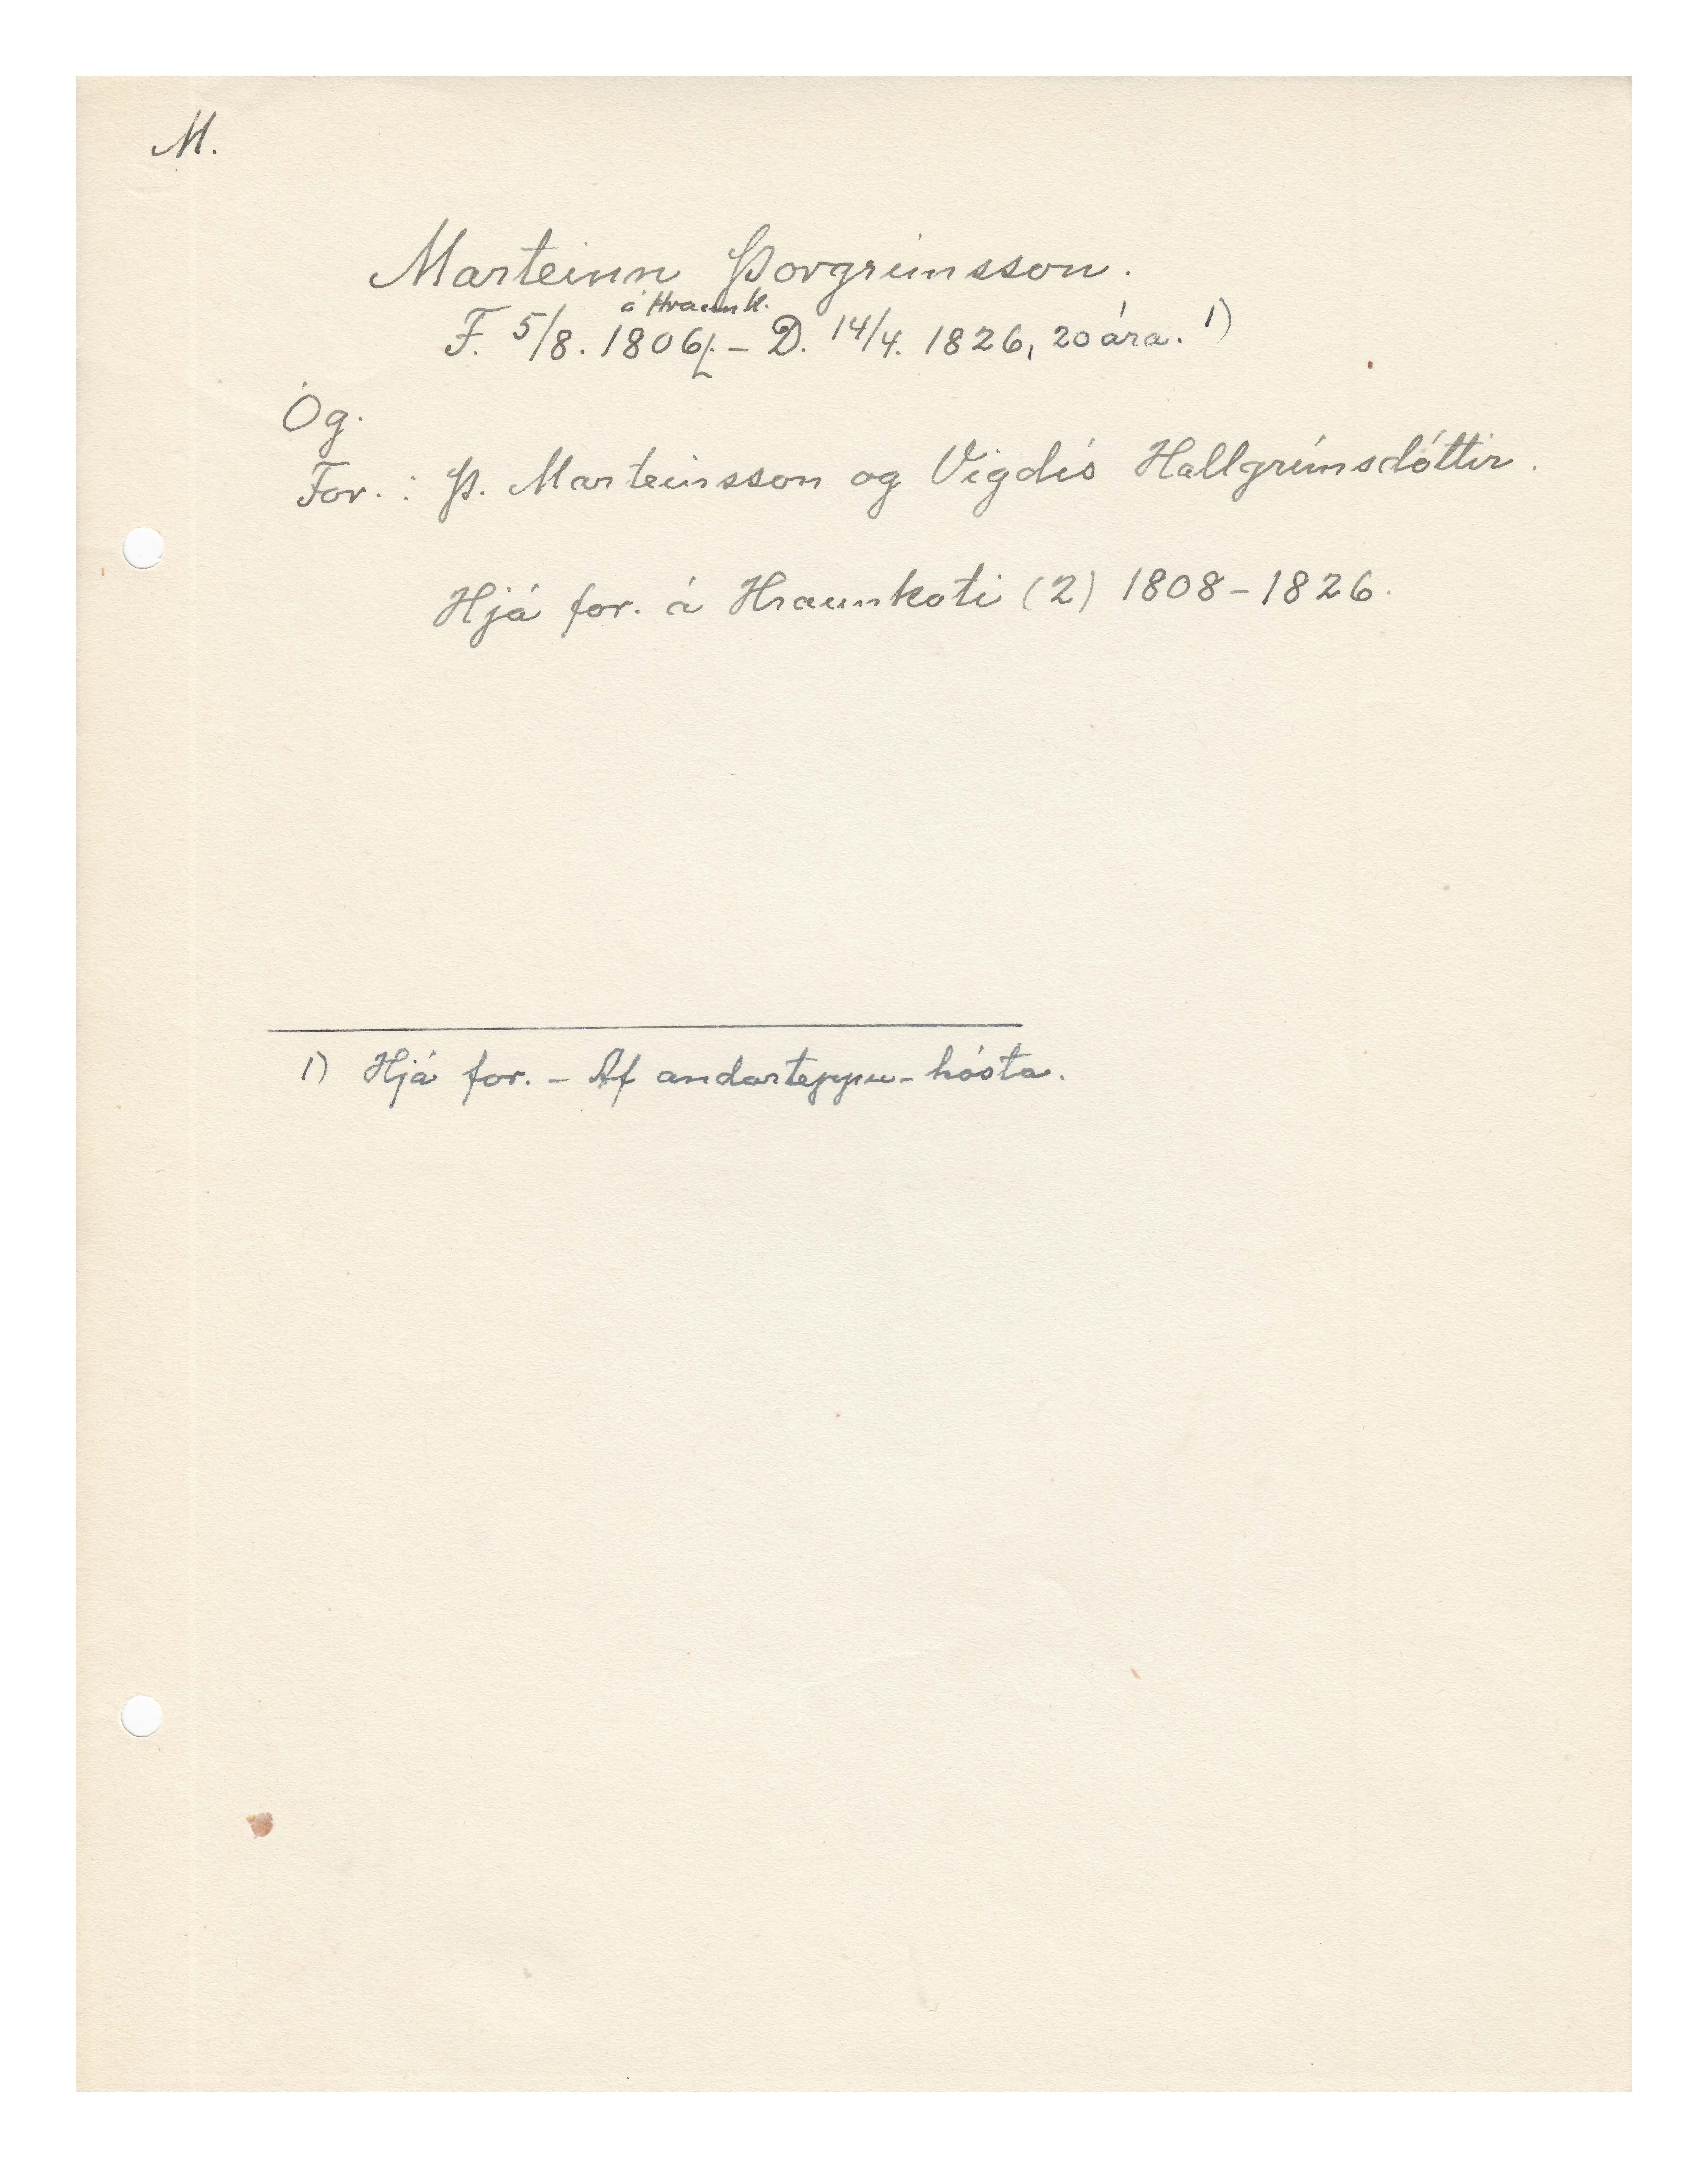 M.
Marteinn Þorgrímsson.
á Hraunk.
F. 5/8. 1806. – D. 14/4. 1826, 20 ára. 1)
Óg.
For.: Þ. Marteinsson og Vigdís Hallgrímsdóttir.
Hjá for. á Hraunkoti (2) 1808–1826.
1) Hjá for. – Af andarteppu-hósta.